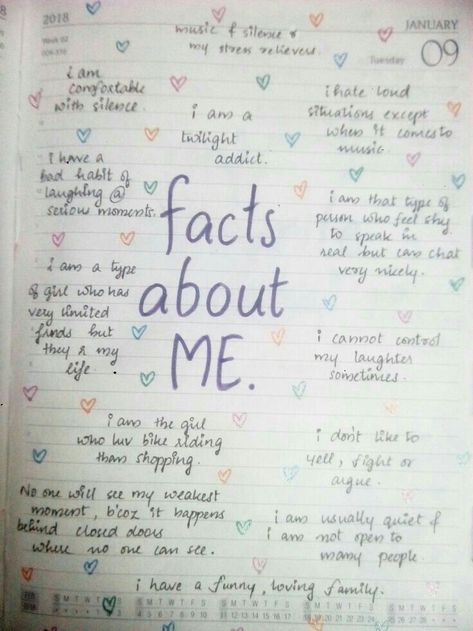 2018
JANUARY
Week 02
009-356
Tuesday
09
music & silence r
my stress relievers.
i am
comfortable
with silence.
i am a
twilight
addict.
i hate loud
situations except
when it comes to
music.
i have a
bad habit of
laughing @
serious moments.
facts
about
ME.
i am that type of
person who feel shy
to speak in
real but can chat
very nicely.
i am a type
of girl who has
very limited
frnds but
they r my
life
i cannot control
my laughter
sometimes.
i am the girl
who luv bike riding
than shopping.
i don't like to
yell, fight or
argue.
No one will see my weakest
moment, b'coz it happens
behind closed doors
where no one can see.
i am usually quiet &
i am not open to
many people.
i have a funny, loving family.
FEB
S M T W T F S S M T W T F S S M T W T F S S M T W T F S